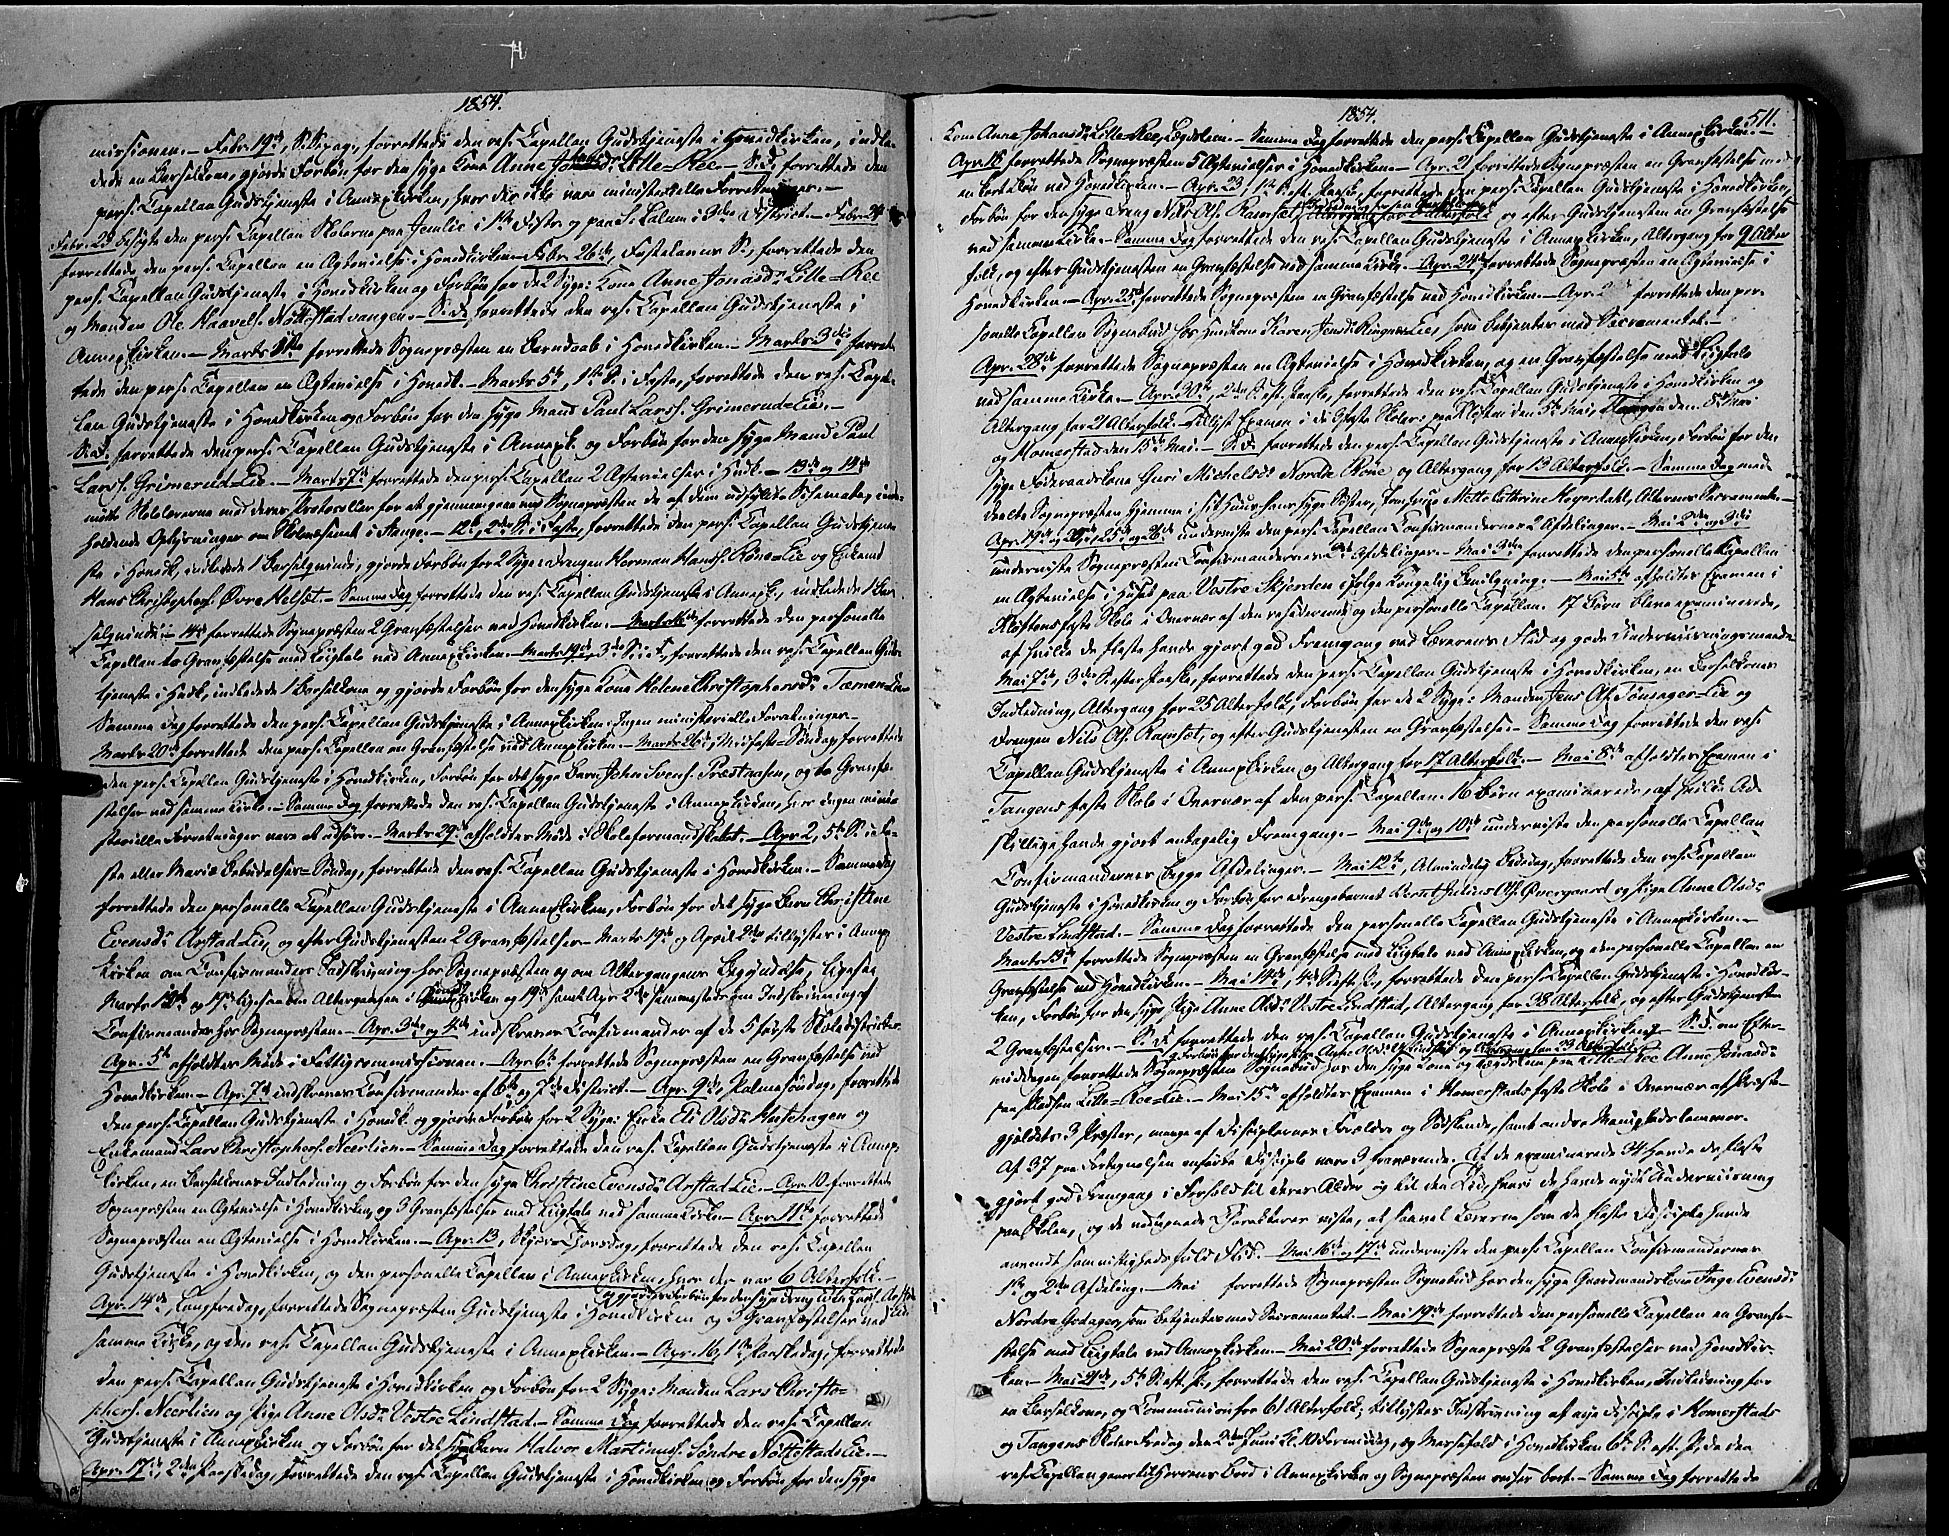 1854.
missionen. – Febr. 19de, S. Sexag., forrettede den res. Capellan Gudstjeneste i Hovedkirken, indle-
dede en Barselkone, gjorde Forbøn for den syge Kone Anne Lille-Ree – S. D. forrettede den
pers. Capellan Gudstjeneste i Annexkirken, hvor der ikke vare ministerielle Forretninger. –
Febr. 23 besøgte den pers. Capellan Skolerne paa i 1ste Distr. og paa i 3die District. – Febr. 24
forrettede den pers. Capellan en Ægtevielse i Hovedkirken. – Febr. 26de, Fastelavns S., forrettede den
pers. Capellan Gudstjeneste i Hovedkirken og Forbøn for de 2 Syge: Kone Anne Jonasdr. Lille-Ree
og Manden Ole Haavels. Nøttestadvangen. – S. D. forrettede den res. Capellan Gudstjeneste i
Annexkirken. – Marts 1ste forrettede Sognepræsten en Barndaab i Hovedkirken. – Marts 3die forret-
tede den pers. Capellan en Ægtevielse i Hovedk. – Marts 5te, 1ste S. i Faste, forrettede den res. Capel-
lan Gudstjeneste i Hovedkirken og Forbøn for den syge Mand Paul Larss. Grimerud-Eie. –
S. D. forrettede den pers. Capellan Gudstjeneste i Annexk. og Forbøn for den syge Mand Paul
Larss. Grimerud-Eie. – Marts 7de forrettede den pers. Capellan 2 Ægtevielser i Hvdk. – 13de og 14de
mødte Skolelærerne med deres Protocoller for at gjennemgaae med Sognepræsten de af dem udfyldte Schemata, inde-
holdende Oplysninger om Skolevæsenet i Stange. – 12te, 2den S. i Faste, forrettede den pers. Capellan Gudstjene-
ste i Hovedk., indledede 1 Barselqvinde, gjorde Forbøn for 2 Syge: Drengen Herman Hanss. Røne-Eie og Enkemd.
Hans Christophers. Øvre Helset. – Samme Dag forrettede den res. Capellan Gudstjeneste i Annexk., indledede 1 Bar-
selqvinde. – 14de forrettede Sognepræsten 2 Gravfæstelser ved Hovedkirken. – forrettede den personelle
Capellan to Gravfæstelse med Liigtale ved Annexkirken. – Marts 19de, 3die S. i F., forrettede den res. Capellan Gud-
stjeneste i Hvdk., indledede 1 Barselkone og gjorde Forbøn for den syge Kone Helene Christophersdr.
Samme Dag forrettede den pers. Capellan Gudstjeneste i Annexkirken. Ingen ministerielle Forretninger. –
Marts 20de forrettede den pers. Capellan en Gravfæstelse ved Annexkirken. – Marts 26de, Midfaste-Søndag, forrettede
den pers. Capellan Gudstjeneste i Hovedkirken, Forbøn for det syge Barn John Svens. Præstaasen, og to Gravfæ-
stelser ved samme Kirke. – Samme Dag forrettede den res. Capellan Gudstjeneste i Annexkirken, hvor ingen mini-
sterielle Forretninger vare at udføre. – Marts 29de afholdtes Møde i Skoleformandskabet. – Apr. 2, 5te S. i Fa-
ste eller Mariæ Bebudelses-Søndag, forrettede den res. Capellan Gudstjeneste i Hovedkirken. – Samme Dag
forrettede den personelle Capellan Gudstjeneste i Annexkirken, Forbøn for det syge Barn Christine
Evensdr. Arstad-Eie, og efter Gudstjenesten 2 Gravfæstelser. – Marts 19de og April 2den tillystes i Annex-
kirken om Confirmanders Indskrivning hos Sognepræsten og om Altergangens Begyndelse, ligesaa
Marts og 19de ligesaa om Altergangen i kirken og 19de samt Apr. 2den sammesteds om Indskrivning af
Confirmander hos Sognepræsten. – Apr. 3die og 4de indskreves Confirmander af de 5 første Skoledistricter.
Apr. 5te afholdtes Møde i Fattigcommissionen. – Apr. 6te forrettede Sognepræsten en Gravfæstelse ved
Hovedkirken. – Apr. 7de indskreves Confirmander af 6te og 7de District. – Apr. 9de, Palmesøndag, forrettede
den pers. Capellan Gudstjeneste i Hovedk. og gjorde Forbøn for 2 Syge: Enke Olsdr. Hutehagen og
Enkemand Lars Christophers. Neerlien. – Samme Dag forrettede den res. Capellan Gudstjeneste i Annex-
kirken, en Barselkones Indledning og Forbøn for den syge Christine Evensdr. Arstad-Eie. – Apr. 10 forrettede
Sognepræsten en Ægtevielse i Hovedkirken, og 3 Gravfæstelser med Liigtale ved samme Kirke. – Apr. 11te forrettede
Sognepræsten en Ægtevielse i Hovedkirken. – Apr. 13, Skjær-Torsdag, forrettede den res. Capellan
Gudstjeneste i Hovedkirken, og den personelle Capellan i Annexkirken, hvor der var 6 Alterfolk. –
og gjorde Forbøn for den syge Dreng
Apr. 14de, Langfredag, forrettede Sognepræsten Gudstjeneste i Hovedkirken og 3 Gravfæstelser ved
samme Kirke, og den res. Capellan Gudstjeneste i Annexkirken. – Apr. 16, 1ste Paaskedag, forrettede
den pers. Capellan Gudstjeneste i Hovedkirken og Forbøn for 2 Syge: Manden Lars Christo-
phers. Neerlien og Pige Anne Olsdr. Vestre Lindstad. – Samme Dag forrettede den res. Capellan
Gudstjeneste i Annexkirken, og Forbøn for det syge Barn Halvor Martinus. Søndre Nøttestad-Eie. –
Apr. 17de, 2den Paaskedag, forrettede den res. Capellan Gudstjeneste i Hovedkirken og Forbøn for den syge
1854.
511.
Kone Anne Johansdr. Lille-Ree, Lægdslem. – Samme Dag forrettede den pers. Capellan Gudstjeneste i Annexkirken. –
Apr. 18 forrettede Sognepræsten 5 Ægtevielser i Hovedkirken. – Apr. 21 forrettede Sognepræsten en Gravfæstelse med
en kort Bøn ved Hovedkirken. – Apr. 23, 1ste S. eft. Paaske, forrettede den pers. Capellan Gudstjeneste i Hovedkirken,
Forbøn for den syge Dreng Nils Ols. Ramset, og efter Gudstjenesten en Gravfæstelse
ved samme Kirke. – Samme Dag forrettede den res. Capellan Gudstjeneste i Annexkirken, Altergang for 9 Alter-
folk, og efter Gudstjenesten en Gravfæstelse ved samme Kirke. – Apr. 24de forrettede Sognepræsten en Ægtevielse i
Hovedkirken. – Apr. 25de forrettede Sognepræsten en Gravfæstelse ved Hovedkirken. – Apr. 2 forrettede den per-
sonelle Capellan Sognebud hos Huskone Karen Jensdr. Ringnes-Eie, som betjentes med Sacramentet. –
Apr. 28de forrettede Sognepræsten en Ægtevielse i Hovedkirken, og en Gravfæstelse med Liigtale
ved samme Kirke. – Apr. 30te, 2den S. eft. Paaske, forrettede den res. Capellan Gudstjeneste i Hovedkirken og
Altergang for 21 Alterfolk. Tillyst Examen i de 3 faste Skoler: paa Kløsten den 5te Mai, Tangen den 8de Mai
og Homerstad den 15de Mai. – S. D. forrettede den pers. Capellan Gudstjeneste i Annexkirken, Forbøn for den
syge Føderaadskone Guri Michelsdr. Nordre Røne og Altergang for 13 Alterfolk. – Samme Dag med-
deelte Sognepræsten hjemme i sit Huus hans syge Søster, Jomfrue Mette Cathrine Heyerdahl, Alterens Sacramente. –
Apr. 19de og 20de, 25de og 26de underviste den pers. Capellan Confirmandernes 2 Afdelinger. – Mai 2den og 3die
underviste Sognepræsten Confirmandernes 2de Afdelinger. – Mai 3die forrettede den personelle Capellan
en Ægtevielse i Huset paa Vestre Skjerden ifølge Kongelig Bevilgning. – Mai 5te afholdtes Examen i
Kløstens faste Skole i Overvær af den residerende og den personelle Capellan. 17 Børn bleve examinerede,
af hvilke de fleste havde gjort god Fremgang ved Lærerens Flid og gode Underviisningsmaade.
Mai 7de, 3die S. efter Paaske, forrettede den pers. Capellan Gudstjeneste i Hovedkirken, en Barselkones
Indledning, Altergang for 25 Alterfolk, Forbøn for de 2 Syge: Manden Jens Ols. Sønsager-Eie og
Drengen Nils Ols. Ramset, og efter Gudstjenesten en Gravfæstelse. – Samme Dag forrettede den res.
Capellan Gudstjeneste i Annexkirken og Altergang for 17 Alterfolk. – Mai 8de afholdtes Examen i
Tangens faste Skole i Overvær af den pers. Capellan. 16 Børn examinerede, af hvilke Ad-
skillige havde gjort antagelig Fremgang. – Mai 9de og 10de underviste den personelle Capellan
Confirmandernes begge Afdelinger. – Mai 12te, Almindelig Bededag, forrettede den res. Capellan
Gudstjeneste i Hovedkirken og Forbøn for Drengebarnet Bernt Julius Ols. Overgaard og Pige Anne Olsdr.
Vestre Lindstad. – Samme Dag forrettede den personelle Capellan Gudstjeneste i Annexkirken. –
13de forrettede Sognepræsten en Gravfæstelse med Liigtale ved Annexkirken, og den personelle Capellan en
Gravfæstelse ved Hovedkirken. – Mai 14de, 4de S. eft. P., forrettede den pers. Capellan Gudstjeneste i Hovedkir-
ken, Forbøn for den syge Pige Anne Olsdr. Vestre Lindstad, Altergang for 38 Alterfolk, og efter Gudstjenesten
2 Gravfæstelser. – S. D. forrettede den res. Capellan Gudstjeneste i Annexkirken – S. D. om Efter-
og Forbøn for den syge Pige Anne Olsdr. Lindstad og Altergang for 23 Alterfolk.
middagen forrettede Sognepræsten Sognebud hos den syge Kone og Lægdslem paa Lille-Ree Anne Jonasdr.
paa Pladsen Lille-Ree-Eie. – Mai 15de afholdtes Examen i Homerstads faste Skole i Overvær af Præste-
gjeldets 3 Præster, mange af Disciplernes Forældre og Sødskende, samt andre Menighedslemmer.
Af 37 paa Fortegnelsen anførte Disciple vare 3 fraværende. Af de examinerede 34 havde de fleste
gjort god Fremgang i Forhold til deres Alder og til den Tid, hvori de havde nydt Underviisning
paa Skolen, og de vedtagende Characterer viste, at saavel Læreren som de fleste Disciple havde
anvendt samvittighedsfuld Flid. – Mai 16de og 17de underviste den pers. Capellan Confirmandernes
1ste og 2den Afdeling. – Mai forrettede Sognepræsten Sognebud hos den syge Gaardmandskone Inge Evensdr.
Nordre Godager, som betjentes med Sacramentet. – Mai 19de forrettede den personelle Capellan en Gravfæ-
stelse med Liigtale ved Annexkirken. – Mai 20de forrettede Sognepræste 2 Gravfæstelser ved Hovedkir-
ken. – Mai 21de, 5te S. eft. P., forrettede den res. Capellan Gudstjeneste i Hovedkirken, Indledning for
en Barselkone, og Communion for 61 Alterfolk; tillystes Indskrivning af nye Disciple i Homerstads
og Tangens Skoler Fredag den 2den Juni Kl. 10 Formiddag, og Messefald i Hovedkirken 6te S. eft. P., da den
res. Capellan gaaer til Herrens Bord i Annexkirken og Sognepræsten reiser bort. – Samme Dag forrettede